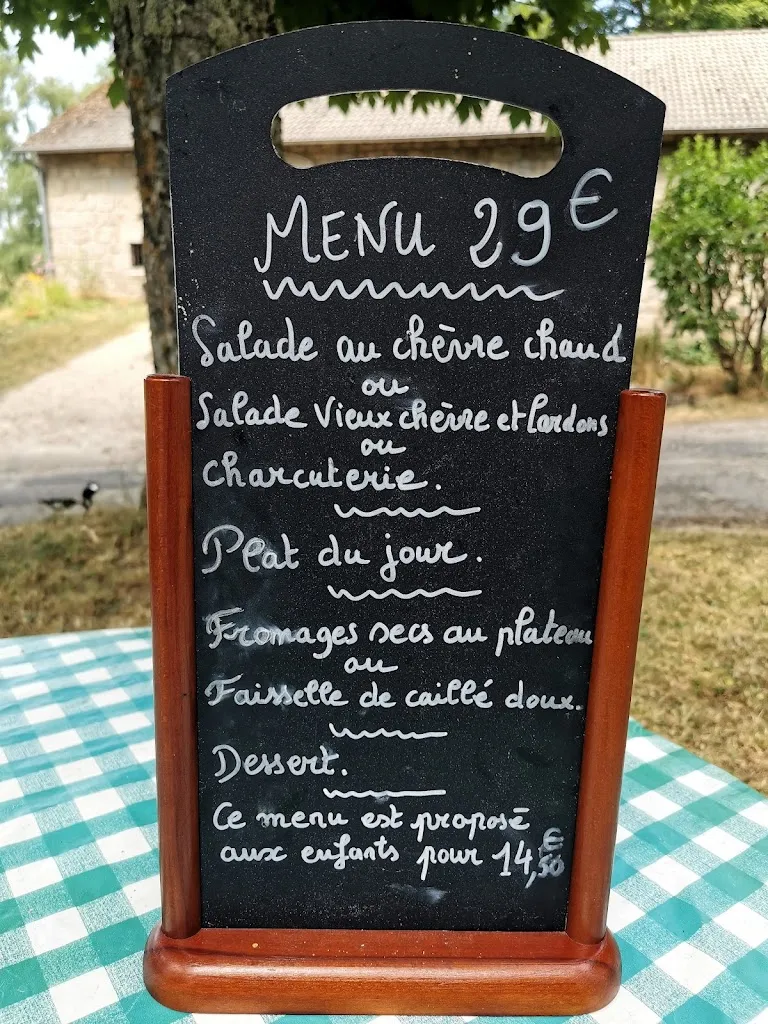 MENU 29€
Salade au chèvre chaud
ou
Salade Vieux chèvre et lardons
ou
Charcuterie.
Plat du jour.
Fromages secs au plateau
ou
Faisselle de caillé doux.
Dessert.
Ce menu est proposé
aux enfants pour 14,50€